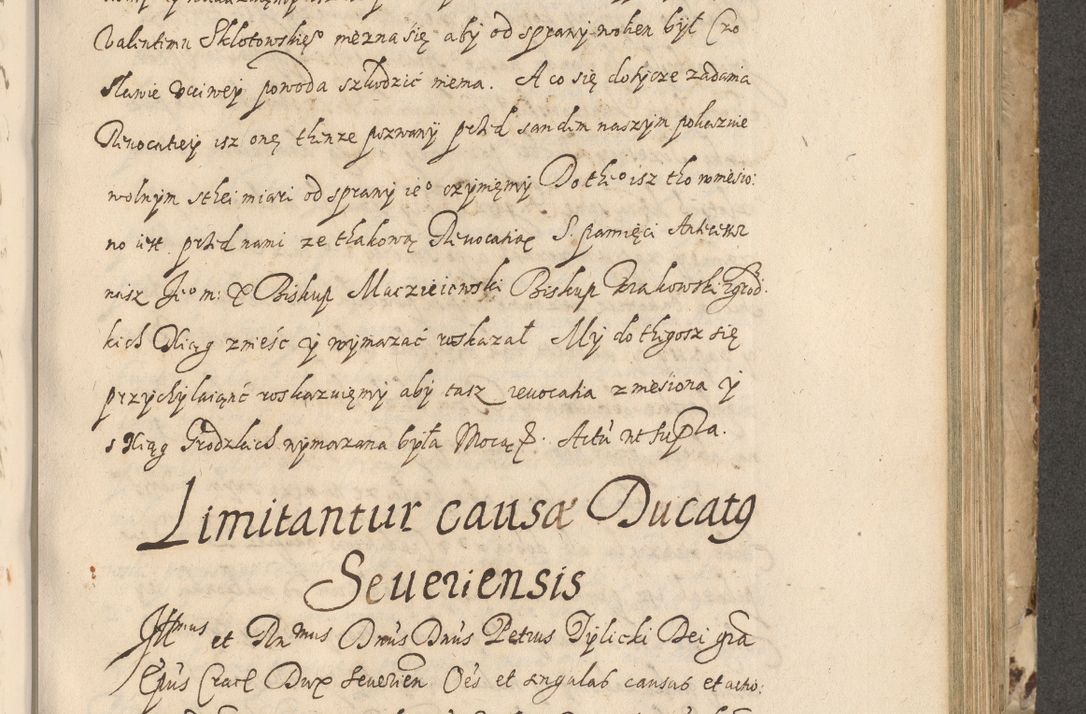 Valentimu Sklotowskie͞o mezna się aby od sprawy wolen był Cno
sławie vcciwey powoda szkodzić niema. A co się dotycze zadania
Revocatiey isz onę thenze pozwany przed sandem naszym pokaznie
wolnym sthei miari od sprawy ie͞o czyniemy Do the͞o isz tho wniesio:
no iest przed nami ze thakową Revocatiae S. pamięci Antecessor
nasz Je͞o m: X Biskup Maczieiewski Biskup Krakowski z grod:
kich Xiąg znieść y wymazać roskazał My do thegosz się
przychylaiąc roskazuięmy aby tasz revocatia zniesiona y
s Xiąg Grodzkich wymazana była Mocą &. Actū ut supra.
Limitantur causæ Ducatꝰ
Seueriensis
Illmus et Rnmus Dnūs Dnūs Petrus Tylicki Dei gra
Epūs Crac Dux seuerien Oēs et singulas causas et actio: